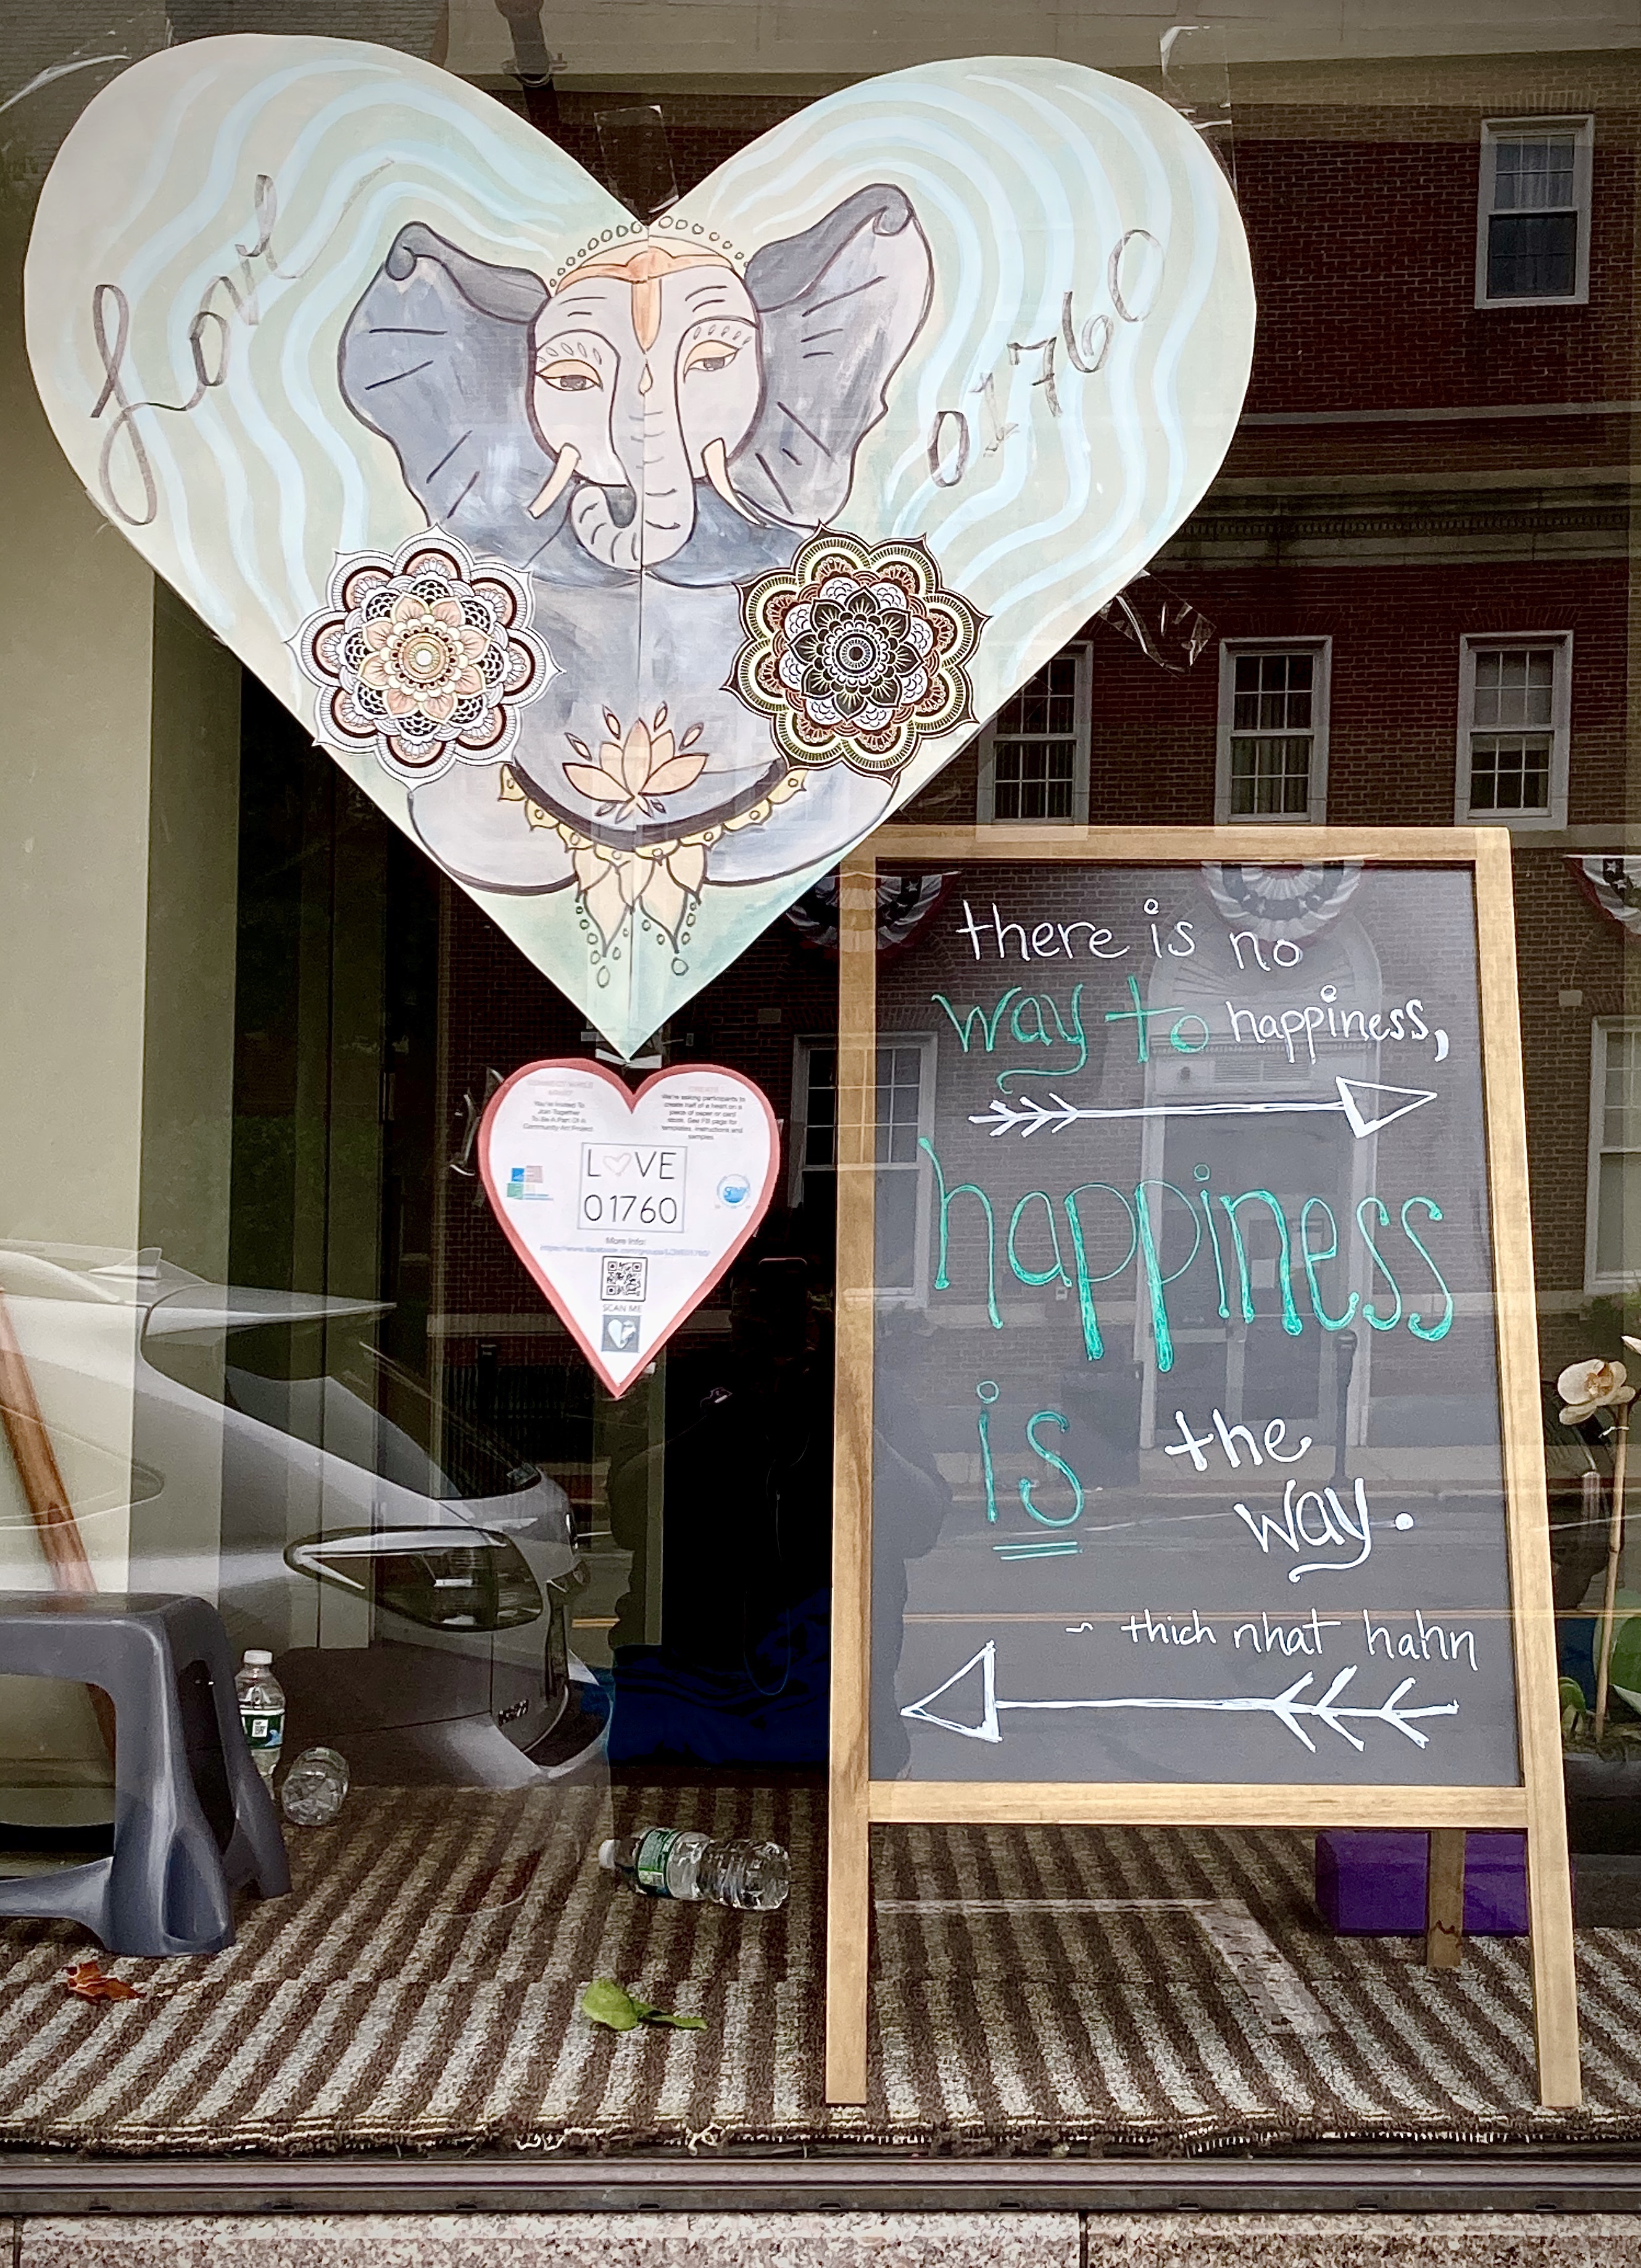 Love
01760
there is no
way to happiness,
happiness
is the
way.
~ thich nhat hahn
You're Invited To
Join Together
To Be A Part Of A
Community Art Project
We're asking participants to
create half of a heart on a
piece of paper or card
stock. See FB page for
templates, instructions and
samples.
L♡VE
01760
More Info:
https://www.facebook.com/groups/LOVE01760/
SCAN ME